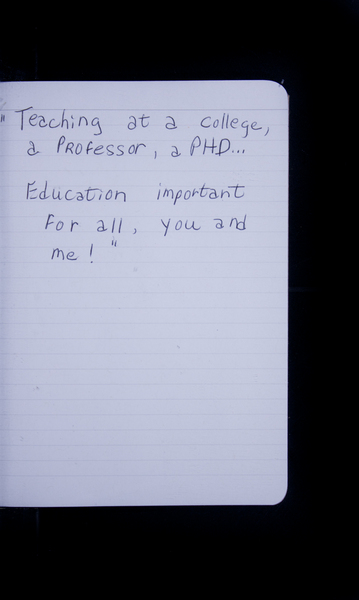 "Teaching at a college,
a Professor, a PHD...
Education important
For all, you and
me!"